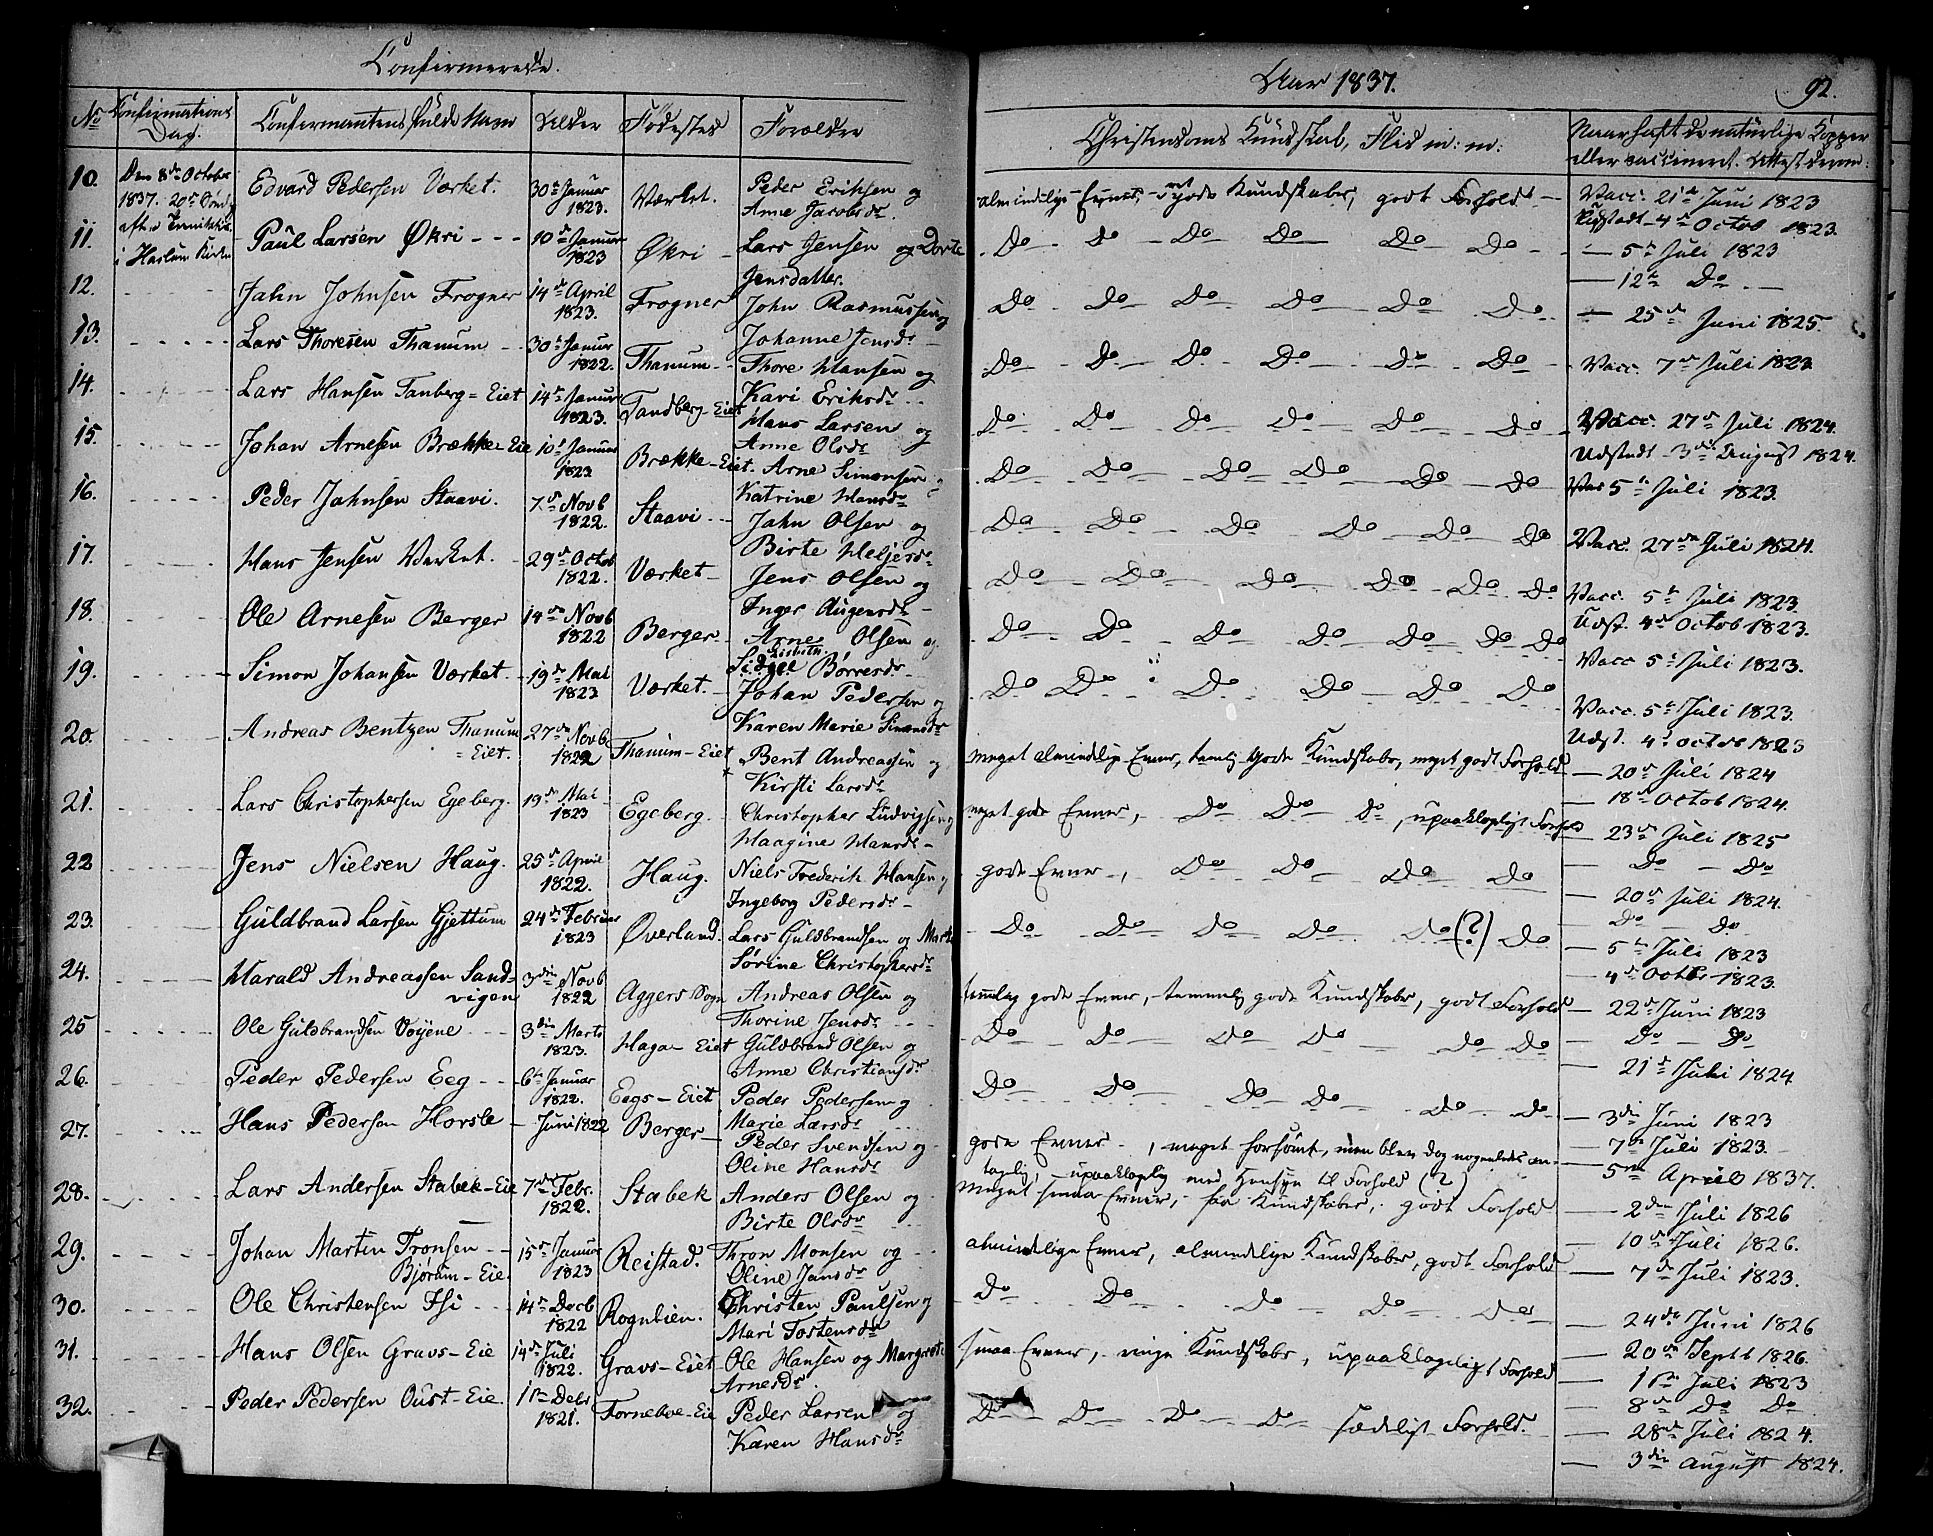 Confirmerede.
Aar 1837.
92.
No
Confirmations Dag.
Confirmantens fulde Navn
Alder
Fødested
Forældre
Christendoms Kundskab, Flid m: m:
Naar haft de naturlige Kopper
eller vaccineret. Attest derom.
10. Den 8de October 1837. 20de Sønd. efter Trinitatis i Haslum Kirke
Edvard Pedersen Værket. 30te Januar 1823. Værket. Peder Eriksen og Anne Jacobsdr. almindelige Evner, gode Kundskaber, godt Forhold
Vacc. 21de Juni 1823
Udstædt 4de Octob 1823.
11. Paul Larsen Økri 10de Januar 1823 Økri Lars Jensen og Dorte Jensdatter. Do Do Do Do Do Do
5te Juli 1823
12te Do
12. Jahn Johnsen Frogner 14de April 1823. Frogner John Rasmussen og Johanne Jensdr Do Do Do Do Do Do
25de Juni 1825.
13. Lars Thoresen Thanum 30te Januar 1822. Thanum Thore Hansen og Kari Eriksdr Do Do Do Do Do Do
Vacc. 7de Juli 1823
14. Lars Hansen Tanberg=Eiet 14de Januar 1823. Tandberg-Eiet Hans Larsen og Anne Olsdr Do Do Do Do Do Do
Vacc. 27de Juli 1824.
Udstædt 3die August 1824.
15. Johan Arnesen Brække-Eie 10de Januar 1823 Brække-Eiet. Arne Simensen og Katrine Hansdr Do Do Do Do Do Do
Vac 5te Juli 1823.
16. Peder Jahnsen Staavi. 7de Novb 1822. Staavi Jahn Olsen og Birte Heljesdr Do Do Do Do Do Do
Vacc. 27de Juli 1824.
17. Hans Jensen Værket. 29de Octob 1822. Værket Jens Olsen og Inger Augensdr Do Do Do Do Do Do
Vacc. 5te Juli 1823.
Udst. 4de Octob 1823.
18. Ole Arnesen Berger 14de Novb 1822 Berger Arne Olsen og Lisbeth Børresdr Do Do Do Do Do Do Do
Vacc 5te Juli 1823.
19. Simon Johansen Værket. 19de Mai 1823 Værket. Johan Pedersen og Karen Marie Simensdr Do Do Do Do Do Do
Vacc. 5te Juli 1823.
Udst. 4de Octob 1823
20. Andreas Bentzen Thanum=Eiet. 27de Novb 1822 Thanum-Eiet Bent Andreassen og Kirsti Larsdr meget almindelige Evner, temlig gode Kundskaber, meget godt Forhold
20de Juli 1824
18de Octob 1824.
21. Lars Christophersen Egeberg. 19de Mai 1823 Egeberg. Christopher Ludvigsen og Maagine Hansdr meget gode Evner, Do Do Do, upaaklageligt Forhold
23de Juli 1825
Do Do
22 Jens Nielsen Haug. 25de April 1822. Haug. Niels Frederik Hansen og Ingeborg Pedersdr gode Evner, Do Do Do Do
20de Juli 1824.
Do Do
23. Guldbrand Larsen Gjettum 24de Februar 1823 Øverland. Lars Guldbrandsen og Marte Sørine Christophersdr Do Do Do Do Do (?) Do
5te Juli 1823
4de Octbr 1823.
24. Harald Andreassen Sandvigen 3die Novb 1822 Aggers Sogn Andreas Olsen og Thorine Jensdr temlig gode Evner, temmelig gode Kundskaber, godt Forhold
22de Juni 1823
Do Do
25 Ole Guldbrandsen Vøyene 3die Marts 1823. Haga-Eiet Guldbrand Olsen og Anne Christiansdr Do Do Do Do Do Do
21de Juli 1824.
26. Peder Pedersen Eeg 6te Januar 1822. Eegs-Eiet Peder Pedersen og Marie Larsdr Do Do Do Do Do Do
3die Juni 1823
7de Juli 1823.
27. Hans Pedersen Horsle Juni 1822 Berger Peder Svendsen og Oline Hansdr gode Evner, meget forsømt, men blev dog nogenledes antagelig, upaaklagelig med Hensyn til Forhold (?)
5te April 1837.
28. Lars Andersen Stabek-Eie 7de Febr. 1822. Stabek Anders Olsen og Birte Olsdr Meget smaa Evner, faa Kundskaber, godt Forhold
2den Juli 1826
10de Juli 1826.
29. Johan Martin Tronsen Bjørum-Eie. 15de Januar 1823 Reistad. Thron Monsen og Oline Jansdr almindelige Evner, almindelige Kundskaber, godt Forhold
7de Juli 1823.
30. Ole Christensen Isi 14de Decb 1822 Rognlien. Christen Paulsen og Mari Tostensdr Do Do Do Do Do
24de Juni 1826
20de Septb 1826.
31. Hans Olsen Gravs-Eie 14de Juli 1822. Gravs-Eiet Ole Hansen og Margrete Arnesdr. smaa Evner, ringe Kundskaber, upaaklageligt Forhold
1ste Juli 1823
8de Do Do
32. Peder Pedersen Oust-Eie. 1821. Forneboe-Eie Peder Larsen og Karen Hansdr Do Do Do Do sædeligt Forhold.
28de Juli 1824.
3die August 1824.